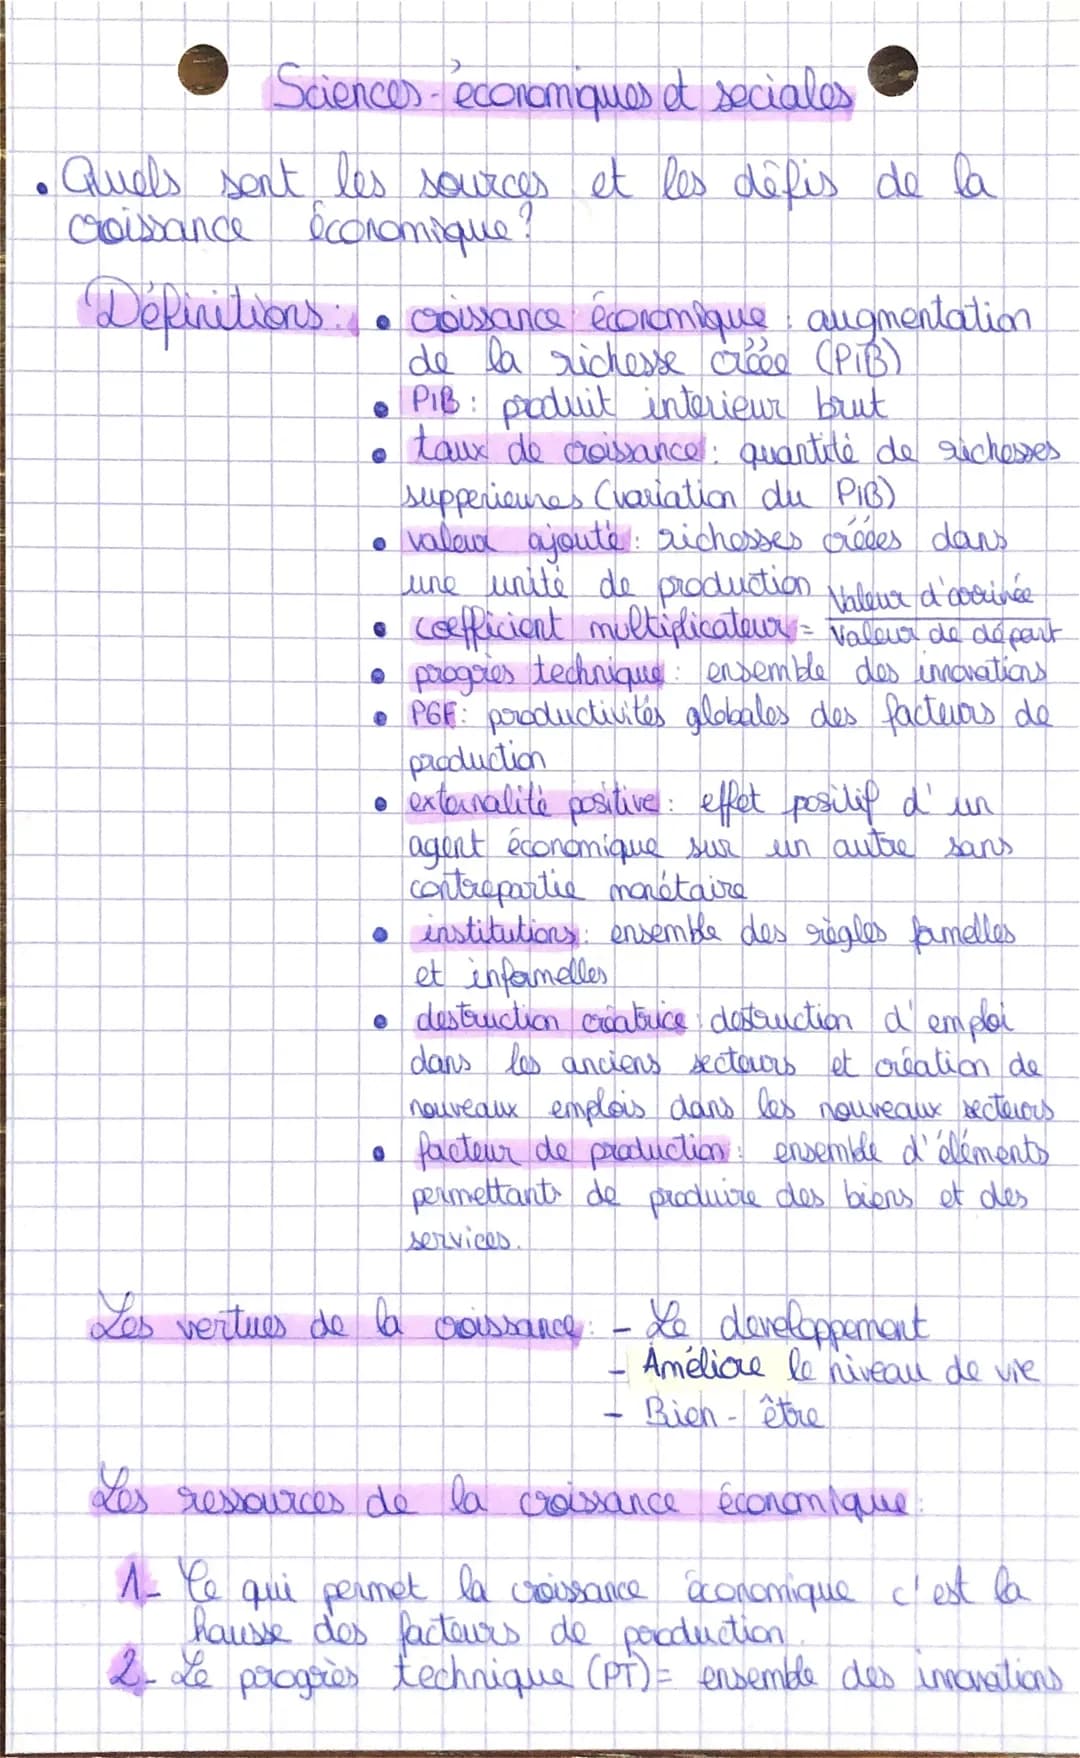 Sciences-économiques et sociales
• Quels sont les sources et les défis de la
croissance économique ?
Définitions : • croissance économique : augmentation
de la richesse créée (PiB)
• PIB : produit interieur brut
• taux de croissance : quantité de richesses
supperieures (variation du PIB)
• valeur ajouté : richesses créées dans
une unité de production
• coefficient multiplicateur = Valeur d'arrivée / Valeur de départ
• progrès technique : ensemble des innovations
• PGF : productivités globales des facteurs de
production
• externalité positive : effet positif d'un
agent économique sur un autre sans
contrepartie monétaire
• institutions : ensemble des règles formelles
et informelles
• destruction créatrice : destruction d'emploi
dans les anciens secteurs et création de
nouveaux emplois dans les nouveaux secteurs
• facteur de production : ensemble d'éléments
permettants de produire des biens et des
services.
Les vertues de la croissance : - Le developpement
- Améliore le niveau de vie
- Bien-être
Les ressources de la croissance économique :
1- Ce qui permet la croissance économique c'est la
hausse des facteurs de production.
2- Le progrès technique (PT) = ensemble des innovations